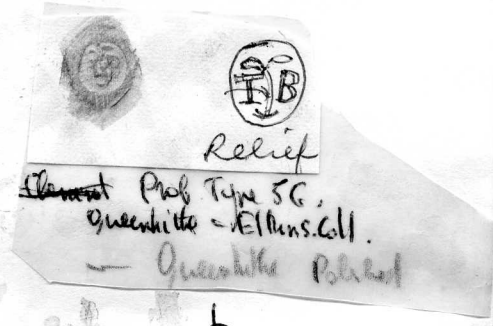 IB
Relief
Prob Type 5G.
Queenhithe - Elkins. Coll.
- Queenhithe Polished